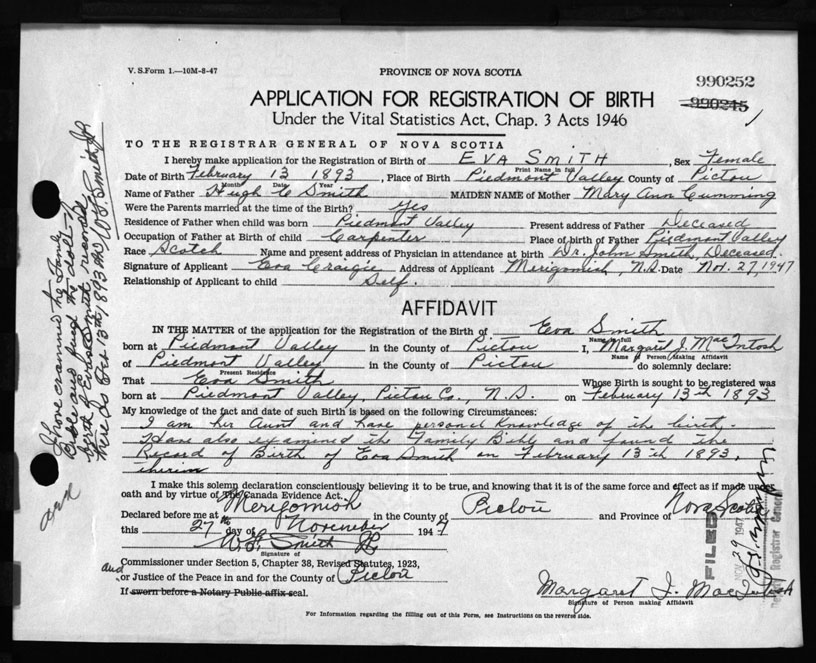 V. S. Form 1.—10M-8-47
PROVINCE OF NOVA SCOTIA
990252
990245
APPLICATION FOR REGISTRATION OF BIRTH
Under the Vital Statistics Act, Chap. 3 Acts 1946
TO THE REGISTRAR GENERAL OF NOVA SCOTIA
I hereby make application for the Registration of Birth of EVA SMITH, Sex Female
Print Name in full
Date of Birth February 13 1893, Place of Birth Piedmont Valley County of Pictou
Month Date Year
Name of Father Hugh C Smith MAIDEN NAME of Mother Mary Ann Cumming
Were the Parents married at the time of the Birth? Yes
Residence of Father when child was born Piedmont Valley Present address of Father Deceased
Occupation of Father at Birth of child Carpenter Place of birth of Father Piedmont Valley
Race Scotch Name and present address of Physician in attendance at birth Dr. John Smith, Deceased.
Signature of Applicant Eva Craigie Address of Applicant Merigomish, N.S. Date Nov. 27, 1947
Relationship of Applicant to child Self.
AFFIDAVIT
IN THE MATTER of the application for the Registration of the Birth of Eva Smith
Name in full
born at Piedmont Valley in the County of Pictou I, Margaret J. MacIntosh
Name of Person Making Affidavit
of Piedmont Valley in the County of Pictou do solemnly declare:
Present Residence
That Eva Smith Whose Birth is sought to be registered was
born at Piedmont Valley, Pictou Co., N.S. on February 13th 1893
My knowledge of the fact and date of such Birth is based on the following Circumstances:
I am her Aunt and have personal knowledge of the birth.
Have also examined the Family Bible and found the
Record of Birth of Eva Smith on February 13th 1893.
therein
I make this solemn declaration conscientiously believing it to be true, and knowing that it is of the same force and effect as if made under
oath and by virtue of The Canada Evidence Act.
Declared before me at Merigomish in the County of Pictou and Province of Nova Scotia
this 27th day of November 1947
W Smith JP
Signature of
Commissioner under Section 5, Chapter 38, Revised Statutes, 1923,
and, or Justice of the Peace in and for the County of Pictou
If sworn before a Notary Public affix seal.
Margaret J. MacIntosh
Signature of Person making Affidavit
For Information regarding the filling out of this Form, see Instructions on the reverse side.
I have examined the Family
Bible and find the
birth of Eva Smith recorded
there as Feb 13th, 1893 Smith JP
and
FILED
NOV 29 1947
Registrar General